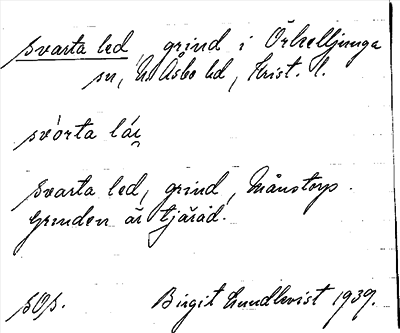 svarta led, grind i Örkelljunga
sn, N. Åsbo hd, Krist. l.
svórta lái̯
Svarta led, grind, Månstorp.
Grinden är tjärad.
sOs. Birgit Lundkvist 1939.